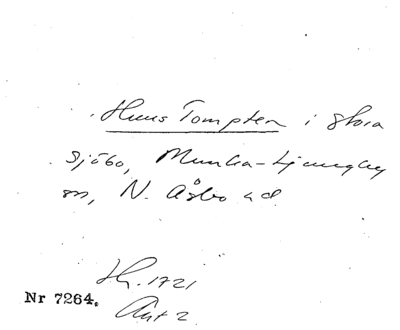 Huus Tompten i Stora
Sjöbo, Munka-Ljungby
sn, N. Åsbo hd
Jb. 1721
Ant 2
Nr 7264.